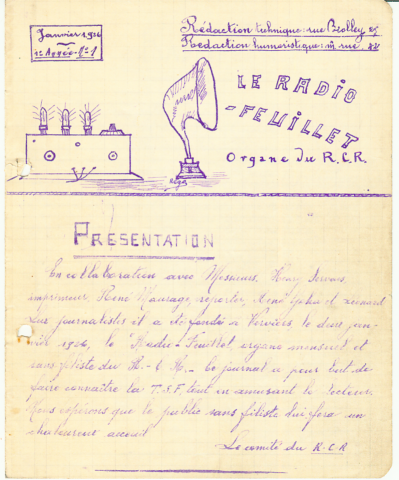 Janvier 1926
1e Année - No 1
Rédaction technique: rue Biolley 25
Rédaction humoristique: m rue 24
LE RADIO
-FEUILLET
Organe du R.C.R.
PRESENTATION
En collaboration avec Messieurs, Henry
imprimeur, René Mawage, reporter, René et Léonard
journalistes il a été fondé à Verviers le deux jan-
vier 1926, le "Radio-Feuillet organe mensuel et
sans filiste du R.-C.R. Ce journal a pour but de
faire connaître la T.S.F, tout en amusant le lecteur.
Nous espérons que le public sans filiste lui fera un
chaleureux accueil
Le comité du R.C.R